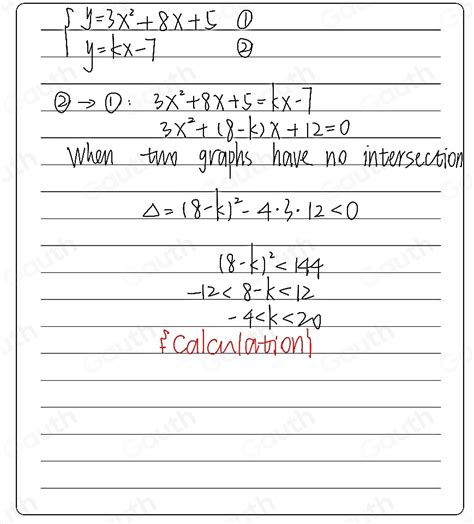 { y=3x²+8x+5 ①
y=kx-7 ②
②→①: 3x²+8x+5=kx-7
3x²+(8-k)x+12=0
When two graphs have no intersection
△=(8-k)²-4·3·12<0
(8-k)²<144
-12<8-k<12
-4<k<20
{Calculation}
Gauth